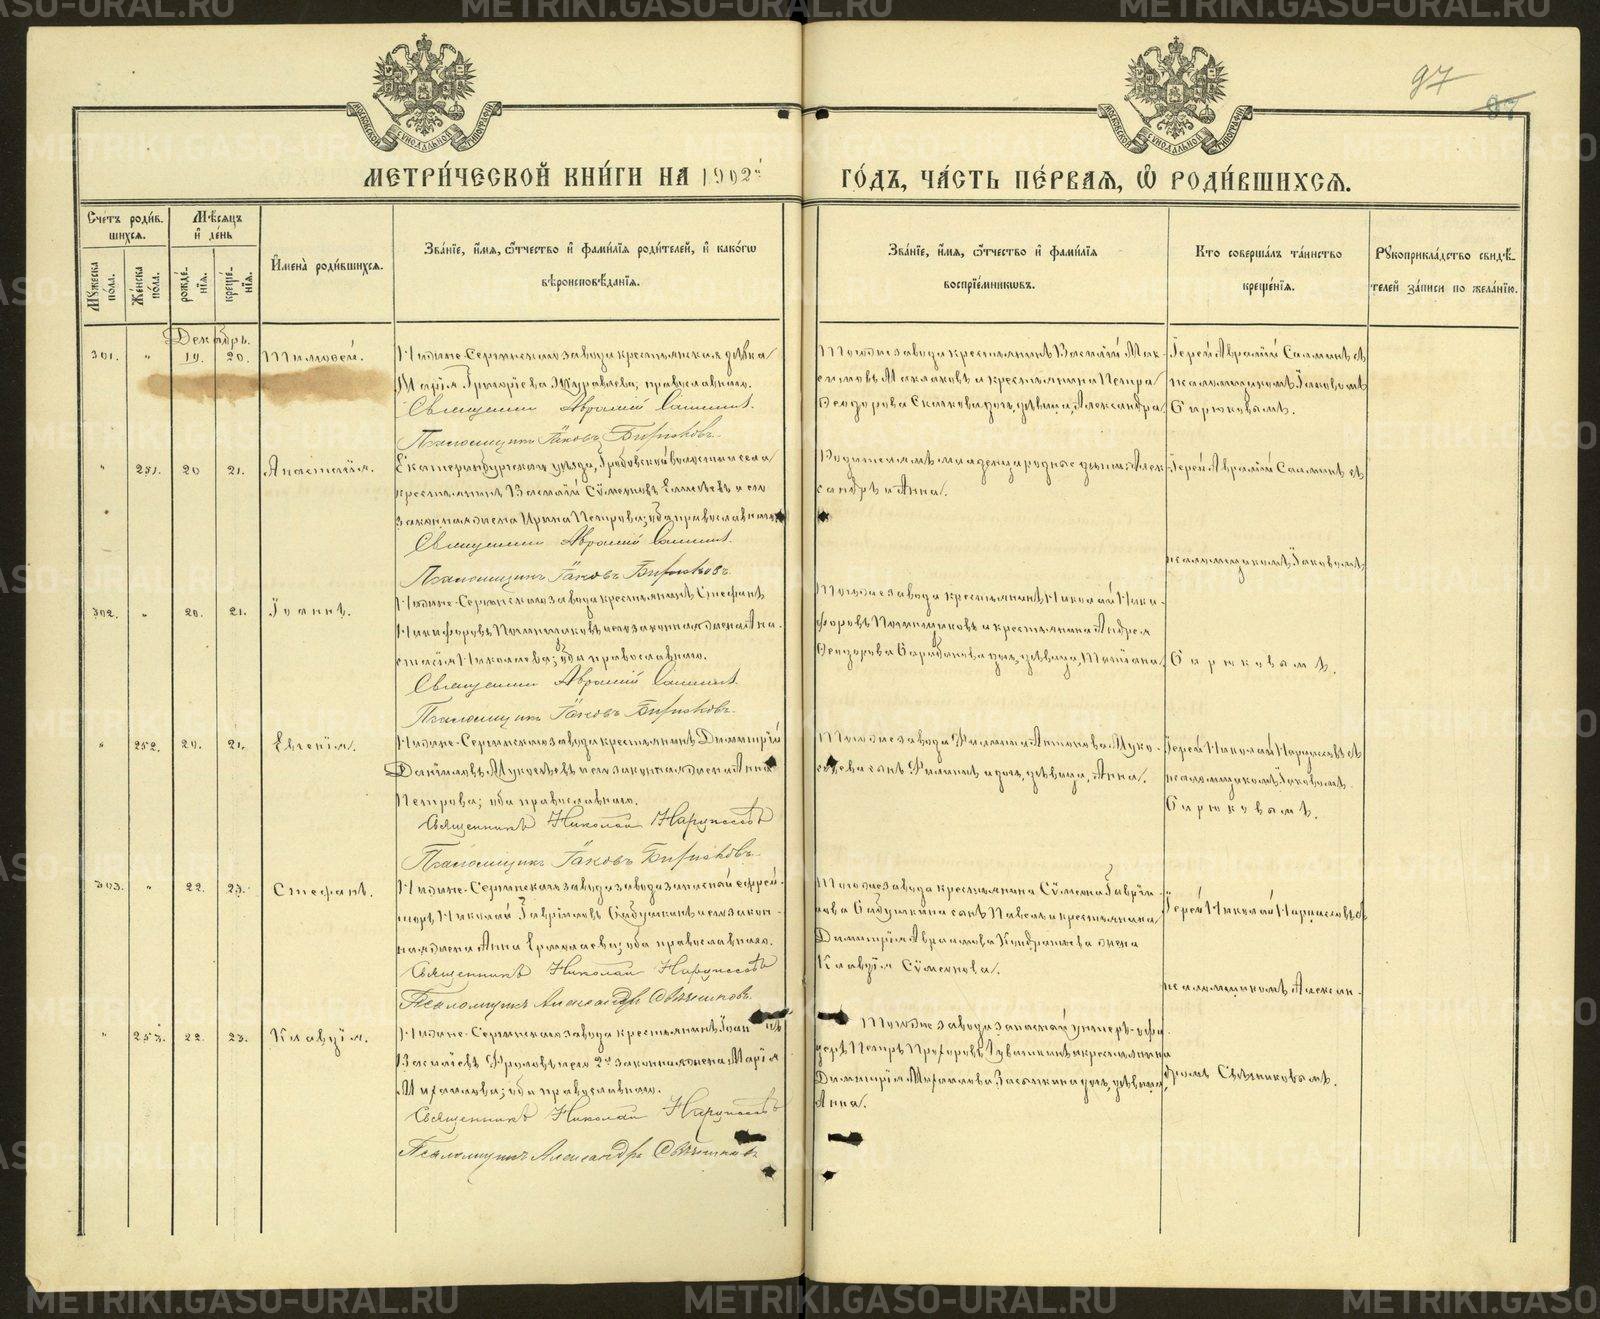 METRIKI.GASO-URAL.RU
97
97
МЕТРИ́ЧЕСКОЙ КНИ́ГИ НА 1902й ГО́ДЪ, ЧА́СТЬ ПЕ́РВАЯ, Ѡ РОДИ́ВШИХСЯ.
Счетъ роди́вшихся.
Му́жеска по́ла.
Же́нска по́ла.
Мѣ́сяцъ и де́нь
рожде́нія.
креще́нія.
Имена̀ роди́вшихся.
Зва́ніе, и́мя, ѻ́тчество и фами́лія роди́телей, и како́гѡ
вѣроисповѣ́данія.
Зва́ніе, и́мя, ѻ́тчество и фами́лія
воспріе́мникѡвъ.
Кто соверша́лъ та́инство
креще́нія.
Рукоприкла́дство свидѣ́телей за́писи по жела́нію.
Декабрь.
301. " 19. 20. Тимоѳей.
Нижне-Сергинскаго завода крестьянская дѣвка
Марія Григоріева Журавлева; православнаго.
Священникъ Аврамій
Псаломщикъ Іаковъ Бирюковъ.
Тогоже завода крестьянинъ Василій Мак-
симовъ и крестьянина Петра
Ѳеодорова дочь, дѣвица, Александра.
Іерей Аврамій съ
псаломщикомъ Іаковомъ
Бирюковымъ.
" 251. 20 21. Анастасія.
Екатеринбургскаго уѣзда, Гробовской волости и села
крестьянинъ Василій Сѵмеоновъ и его
законная жена Ирина Петрова; оба православнаго.
Священникъ Аврамій
Псаломщикъ Іаковъ Бирюковъ.
Родителямъ младенца родные дѣти: Алек-
сандръ и Анна.
Іерей Аврамій съ
псаломщикомъ Іаковомъ
302. " 20. 21. Іоаннъ.
Нижне-Сергинскаго завода крестьянинъ Стефанъ
Никифоровъ и его законная жена Ана-
стасія Николаева; оба православнаго.
Священникъ Аврамій
Псаломщикъ Іаковъ Бирюковъ.
Тогоже завода крестьянинъ Николай Ники-
форовъ и крестьянина Андрея
Ѳеодорова дочь, дѣвица, Татіана.
Бирюковымъ.
" 252. 20. 21. Евгенія.
Нижне-Сергинскаго завода крестьянинъ Димитрій
Даніиловъ Мукосѣевъ и его законная жена Анна
Петрова; оба православнаго.
Священникъ Николай Нарциссовъ
Псаломщикъ Іаковъ Бирюковъ.
Тогоже завода Филиппа Антонова Муко-
сѣева сынъ Филиппъ и дочь, дѣвица, Анна.
Іерей Николай Нарциссовъ съ
псаломщикомъ Іаковомъ
Бирюковымъ.
303. " 22. 23. Стефанъ.
Нижне-Сергинскаго завода запасной ефрей-
торъ Николай Гавріиловъ Бабушкинъ и его закон-
ная жена Анна Ермолаева; оба православнаго.
Священникъ Николай Нарциссовъ
Псаломщикъ Александръ Свѣчниковъ.
Тогоже завода крестьянина Сѵмеона Гавріи-
лова Бабушкина сынъ Павелъ и крестьянина
Димитрія Авраамова Кондратьева жена
Клавдія Сѵмеонова.
Іерей Николай Нарциссовъ съ
псаломщикомъ Алексан-
" 253. 22. 23. Клавдія.
Нижне-Сергинскаго завода крестьянинъ Іоаннъ
Василіевъ Фроловъ и его 2я законная жена Марія
Михаилова; оба православнаго.
Священникъ Николай Нарциссовъ
Псаломщикъ Александръ Свѣчниковъ
Тогоже завода запасной унтеръ-офи-
церъ Петръ Прохоровъ Чувашкинъ и крестьянина
Димитрія Михаилова дочь, дѣвица,
Анна.
дромъ Свѣчниковымъ.